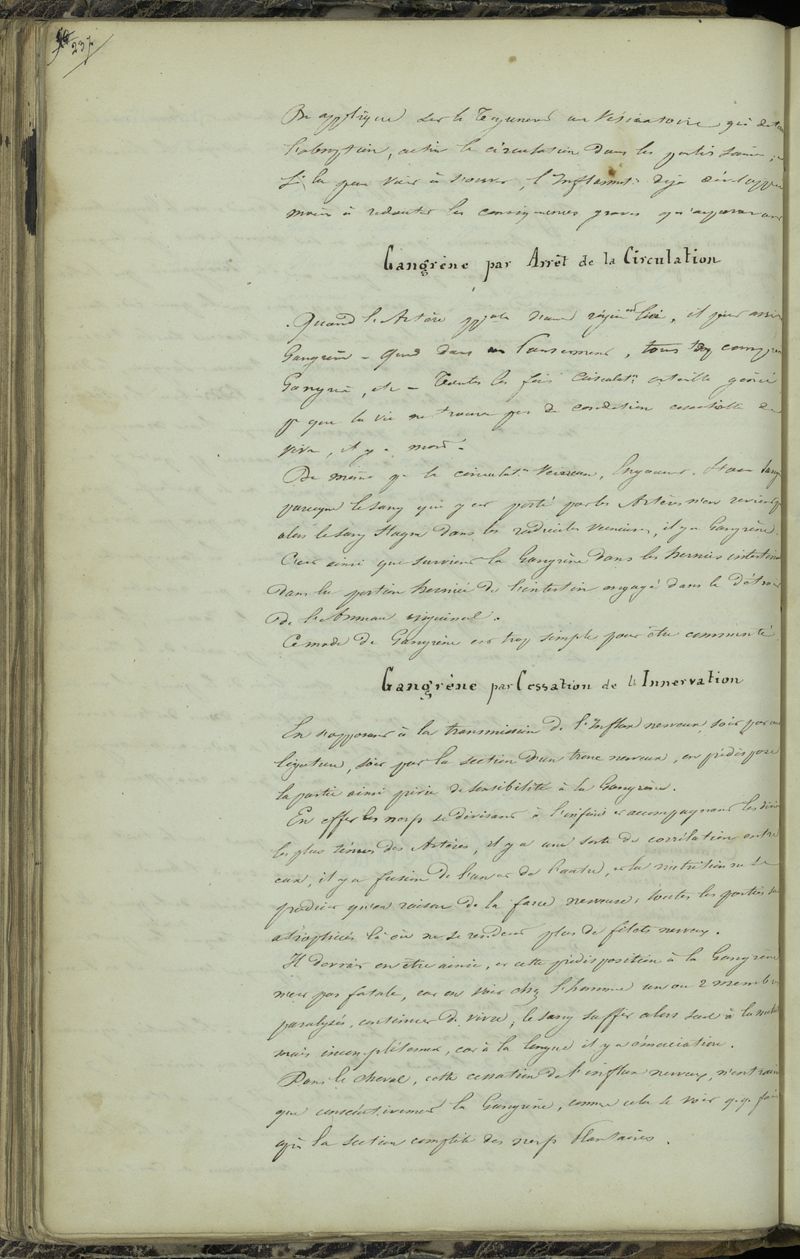 237
On applique sur le Tégument un Vésicatoire qui
l'absorption, active la circulation dans les parties saines,
l'Inflammt. déja développée
moins à redouter les conséquences graves
Gangrène par Arrêt de la Circulation
Quand l'Artère ppale d'une région est liée, il peut
Gangrène – dans un Pansement, tous
Gangrène, etc – Toutes les fois Circulatn. artérielle génée
que la vie ne trouve pas de condition essentielle de
vivre, il y a mort.
De même qe la circulatn. Veineuse,
parceque le sang qui y est porté par les Artères n'en revient
alors le sang stagne dans les radicules veineuses, il y a Gangrène.
C'est ainsi que survient la Gangrène dans les hernies
dans la portion herniée de l'intestin engagé dans le
de l'Anneau inguinal.
Ce mode de Gangrène est trop simple pour être commenté
Gangrène par Cessation de l'Innervation
En s'opposant à la transmission de l'Influx nerveux soit par
ligature, soit par la section d'un tronc nerveux, on prédispose
la partie ainsi privée de sensibilité à la Gangrène.
En effet les nerfs se divisant à l'infini et accompagnant les
les plus ténues des Artères, il y a une sorte de corrélation entre
eux, il y a fusion de l'un et de l'autre, et la nutrition ne se
produit qu'en raison de la force nerveuse; toutes les parties
atrophiées là où ne se rendent plus de filets nerveux.
Il devrait en être ainsi, et cette prédisposition à la Gangrène
n'est pas fatale, car on voit chez l'homme un ou 2 membres
paralysés, continuer de vivre, le sang suffit alors seul à la
mais incomplétement, car à la longue il y a émaciation.
Dans le cheval, cette cessation de l'influx nerveux, n'entraine
que consécutivement la Gangrène, comme cela se voit qq. fois
après la section complète des nerfs Plantaires.